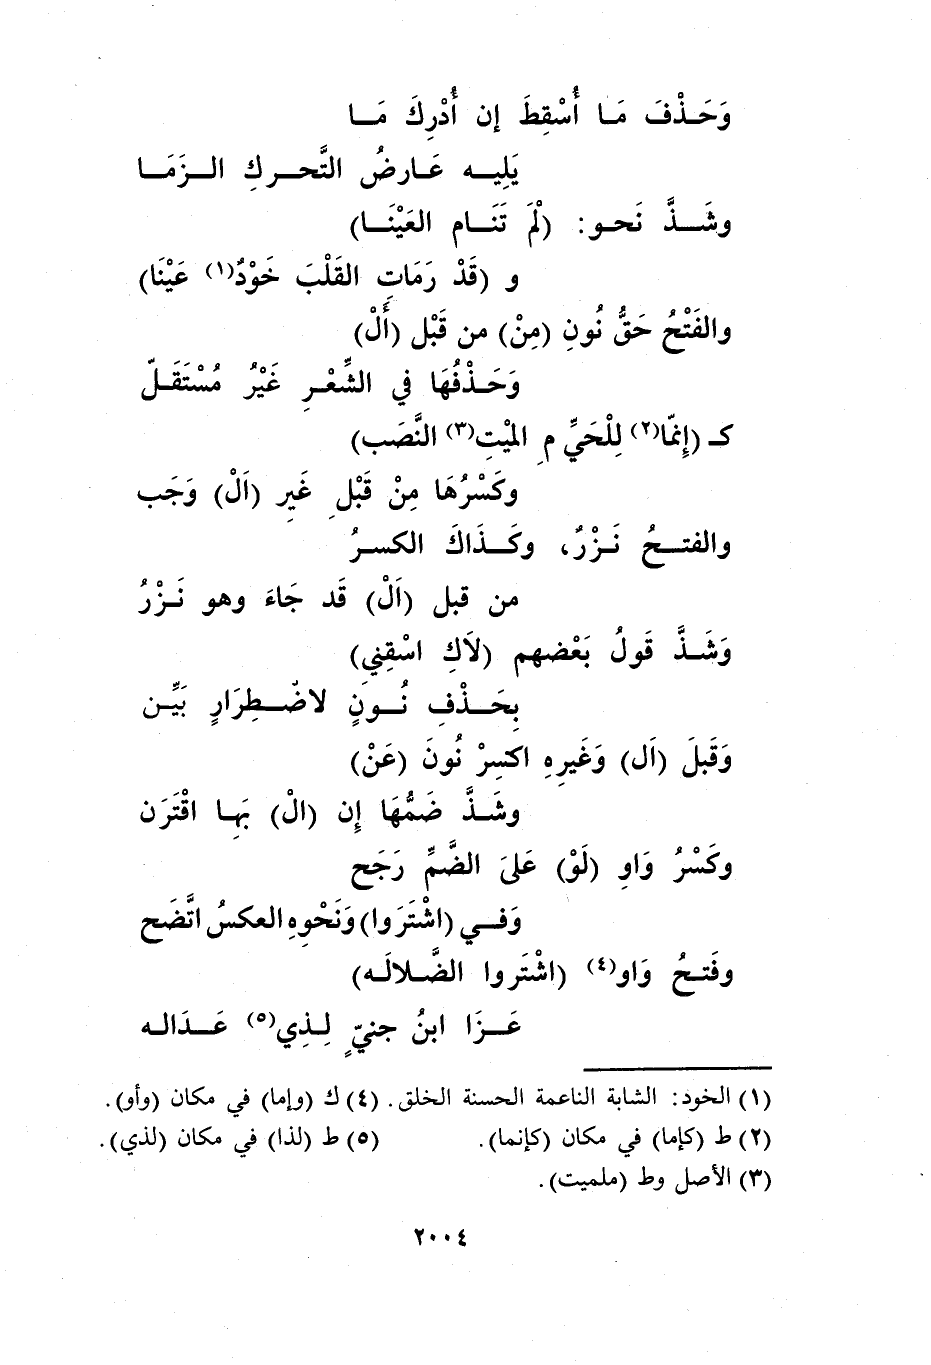 وَحَـذْفَ مَـا أُسْقِطَ إن أُدْرِكَ مَــا
يَلِيــه عَـارضُ التَّحــركِ الــزَمَــا
وشَــذَّ نَحـو: (لَمْ تَنَــام العَيْنَــا)
و (قَدْ رَمَاتِ القَلْبَ خَوْدٌ(١) عَيْنَا)
والفَتْحُ حَقُّ نُونِ (مِنْ) من قَبْل (أَلْ)
وَحَـذْفُهَا في الشِّعْـرِ غَيْرُ مُسْتَقَـلّ
كـ (إِنمّا(٢) لِلْحَيِّ مِ الميْتِ(٣) النَّصَب)
وكَسْرُهَا مِنْ قَبْلِ غَيرِ (اَلْ) وَجَب
والفتــحُ نَـزْرٌ، وكَــذَاكَ الكسـرُ
من قبل (اَلْ) قَد جَاءَ وهو نَـزْرُ
وَشَـذَّ قَولُ بَعْضهم (لاَكِ اسْقِنِي)
بِحَــذْفِ نُــونٍ لاضْـطِرَارٍ بَيِّـن
وَقَبلَ (اَل) وَغَيرِهِ اكسِرْ نُونَ (عَنْ)
وشَـذَّ ضَمُّهَا إِن (الْ) بِهَـا اقْتَرَن
وكَسْرُ وَاوِ (لَوْ) عَلىَ الضَّمِّ رَجَح
وَفـي (اشْتَرَوا) وَنَحْوِهِ العكسُ اتَّضَح
وفَتـحُ وَاو(٤) (اشْتَروا الضَّـلالَـه)
عَــزَا ابنُ جنيّ لِـذِي(٥) عَــدَالـه
(١) الخود: الشابة الناعمة الحسنة الخلق. (٤) ك (وإما) في مكان (وأو).
(٢) ط (كإما) في مكان (كإنما). (٥) ط (لذا) في مكان (لذي).
(٣) الأصل وط (ملميت).
٢٠٠٤